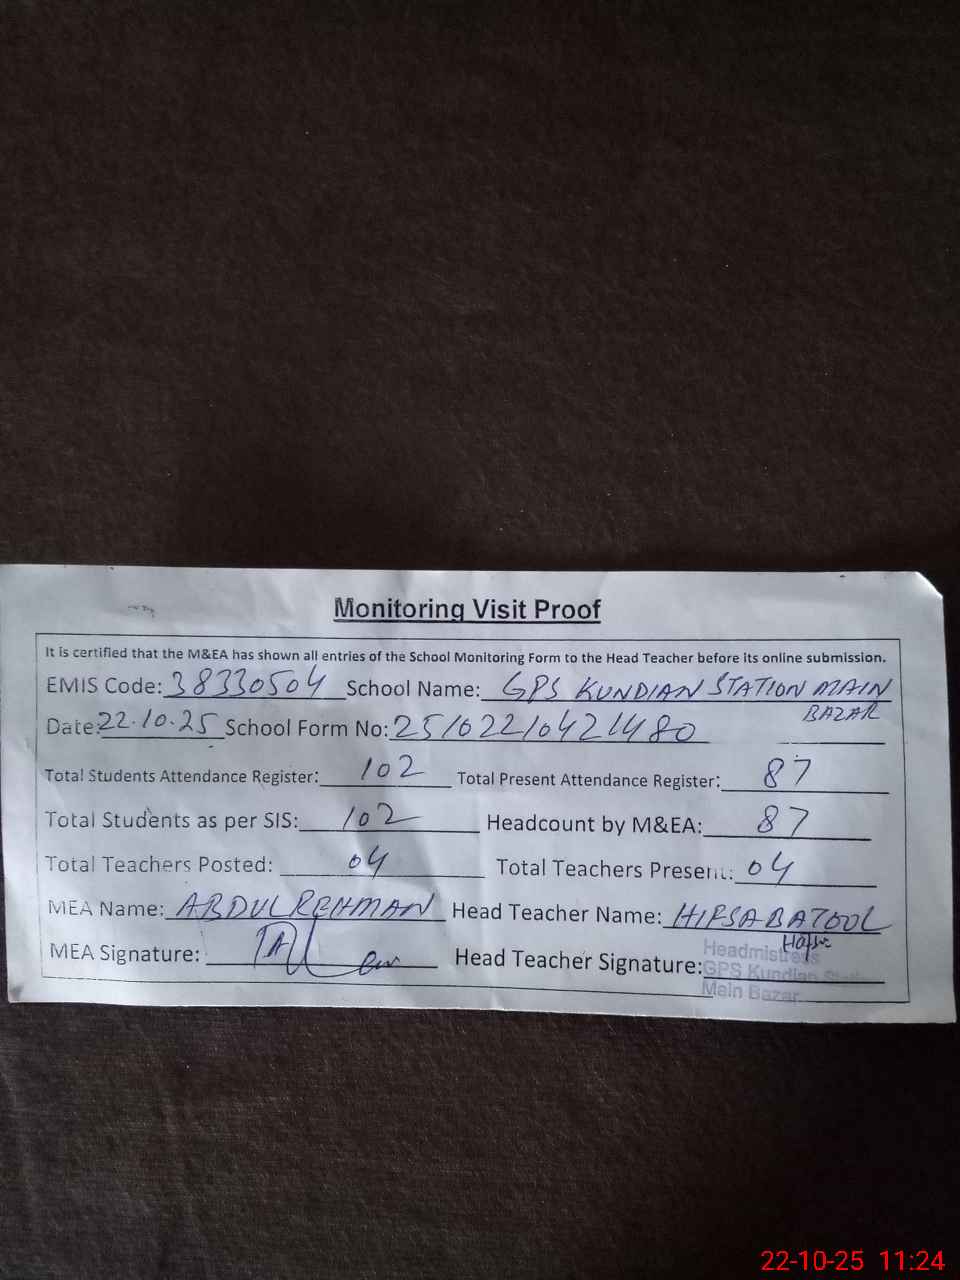 Monitoring Visit Proof
It is certified that the M&EA has shown all entries of the School Monitoring Form to the Head Teacher before its online submission.
EMIS Code: 38330504 School Name: GPS KUNDIAN STATION MAIN
BAZAR
Date: 22.10.25 School Form No: 2510221042 1480
Total Students Attendance Register: 102 Total Present Attendance Register: 87
Total Students as per SIS: 102 Headcount by M&EA: 87
Total Teachers Posted: 04 Total Teachers Present: 04
MEA Name: ABDUL REHMAN Head Teacher Name: HIFSA BATOOL
MEA Signature: Head Teacher Signature:
Headmistress
GPS Kundian
Main Bazar
22-10-25 11:24